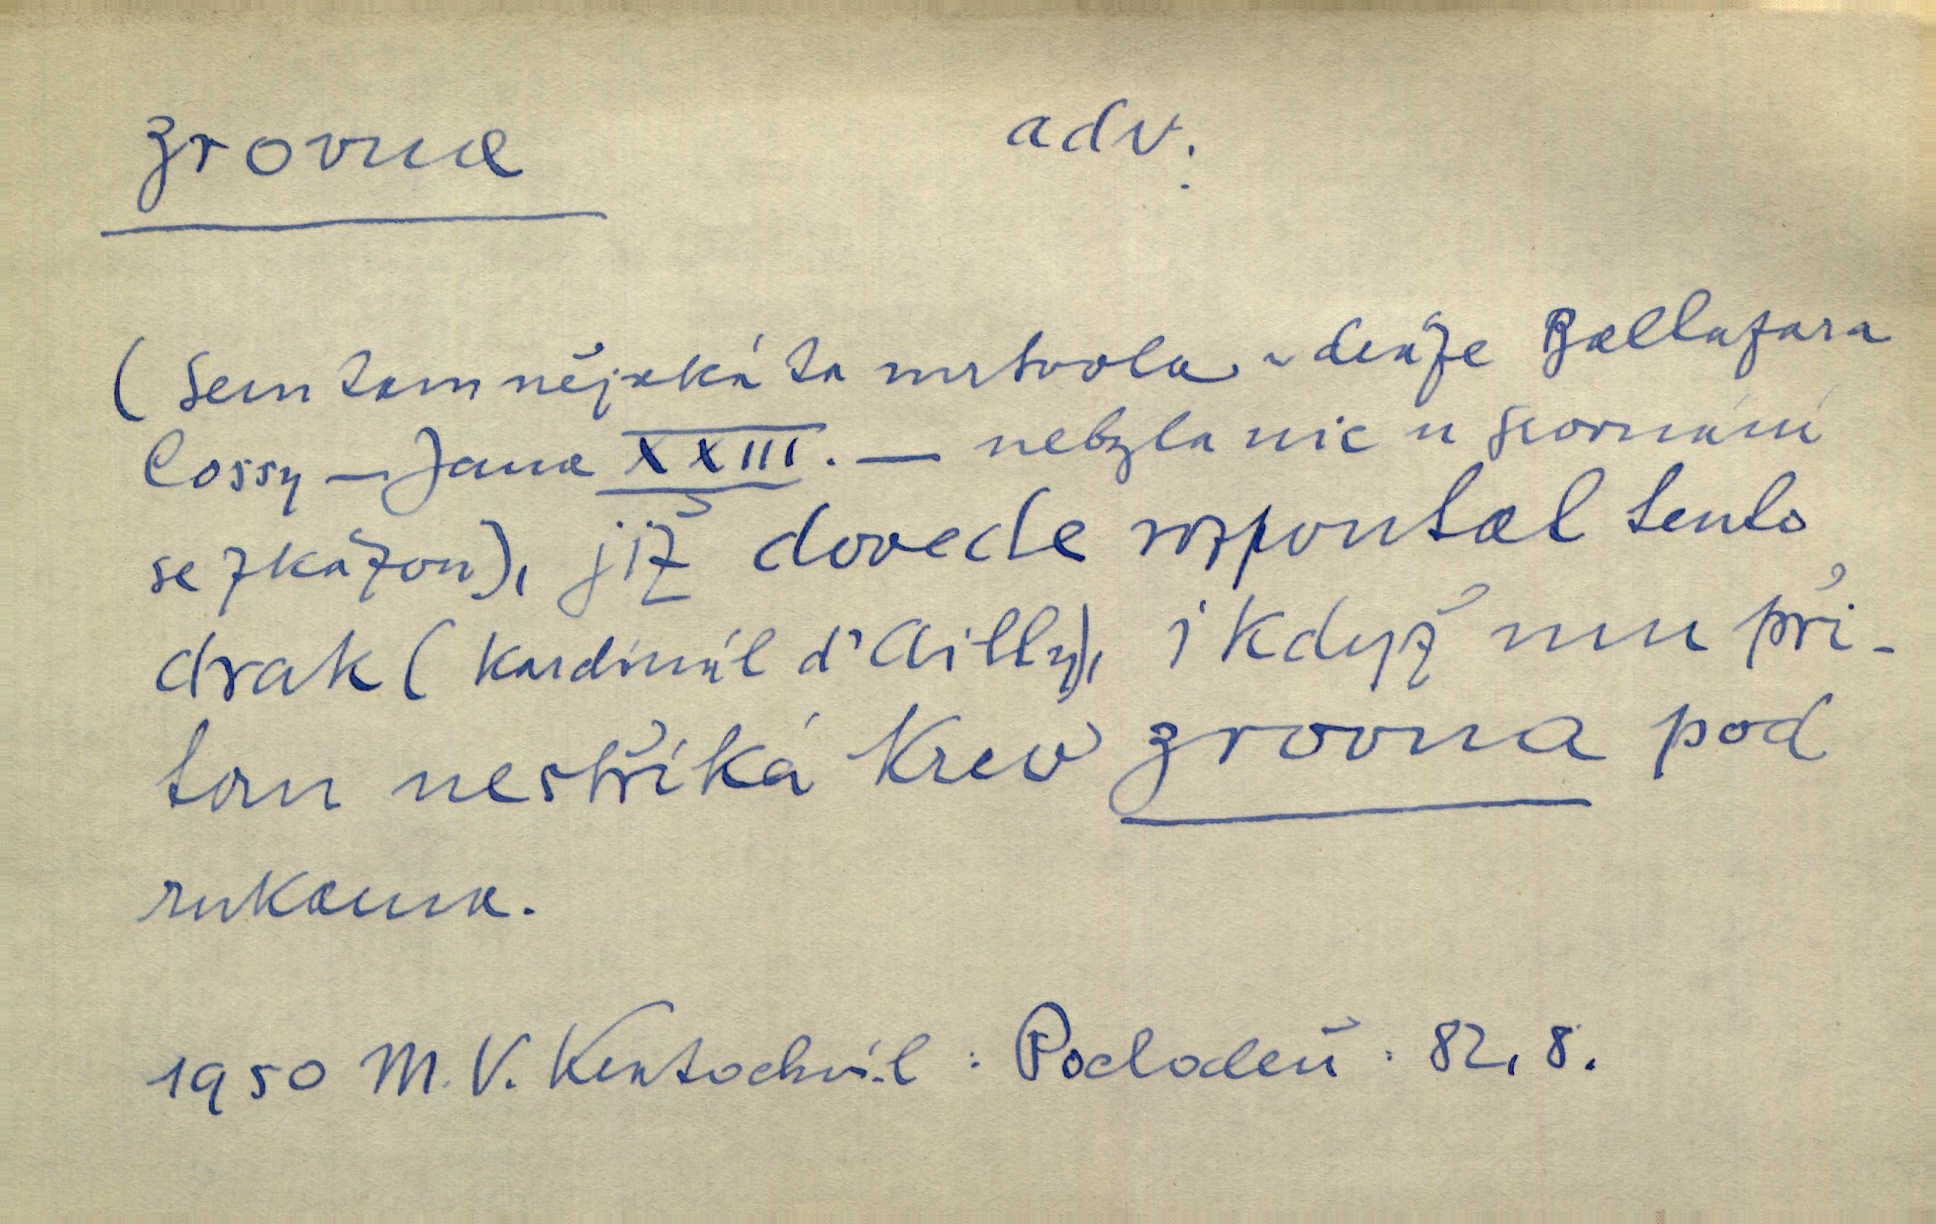 zrovna adv.
(Sem tam nějaká ta mrtvola v díže Baltazara
Cossy – Jana XXIII. – nebyla nic u srovnání
se zkázou), již dovede rozpoutat tento
drak (kardinál d'Ailly), i když mu při-
tom nestříká krev zrovna pod
rukama.
1950 M. V. Kratochvíl : Pochodeň. 82, 8.